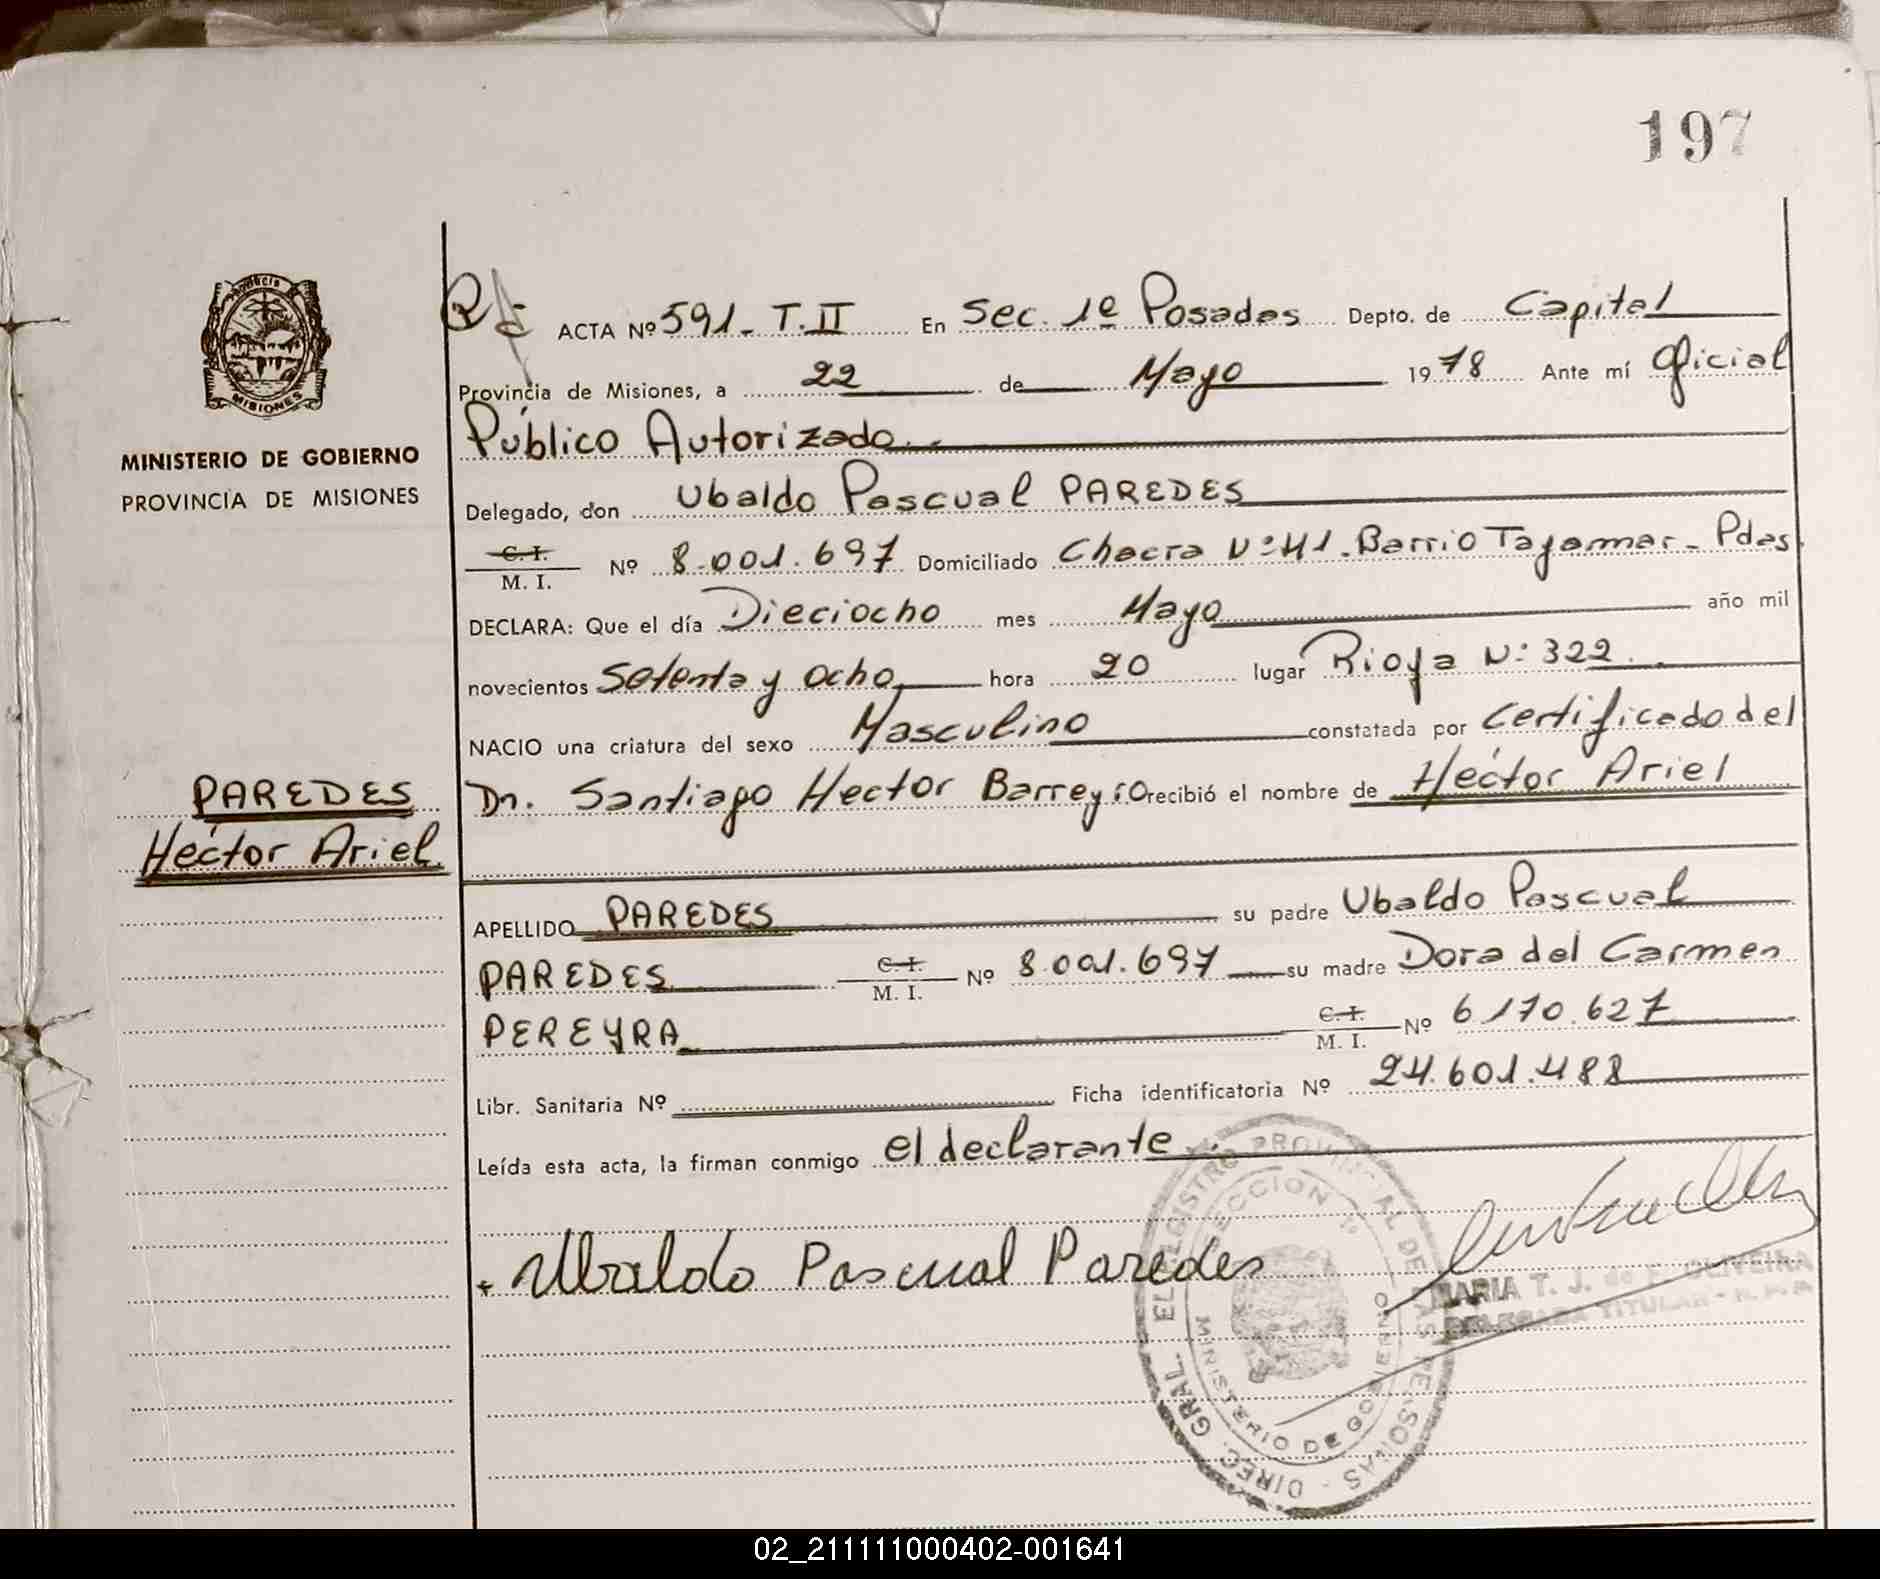 197
PROVINCIA
MISIONES
MINISTERIO DE GOBIERNO
PROVINCIA DE MISIONES
ACTA Nº 591 - T. II En Sec. 1ª Posadas Depto. de Capital
Provincia de Misiones, a 22 de Mayo 1978 Ante mí Oficial
Público Autorizado.-
Delegado, don Ubaldo Pascual PAREDES
C. I.
M. I. Nº 8.001.697 Domiciliado Chacra Nº 41. Barrio Tajamar - Pdas.
DECLARA: Que el día Dieciocho mes Mayo año mil
novecientos Setenta y Ocho hora 20 lugar Rioja Nº 322.
NACIO una criatura del sexo Masculino constatada por Certificado del
Dr. Santiago Hector Barreyro recibió el nombre de Héctor Ariel
PAREDES
Héctor Ariel
APELLIDO PAREDES su padre Ubaldo Pascual
PAREDES C. I. M. I. Nº 8.001.697 su madre Dora del Carmen
PEREYRA C. I. M. I. Nº 6170.627
Libr. Sanitaria Nº Ficha identificatoria Nº 24.601.488
Leída esta acta, la firman conmigo el declarante.
Ubaldo Pascual Paredes
MARIA T. J. de F. OLIVEIRA
DELEGADA TITULAR - R. P. P.
DIREC. GRAL. EL REGISTRO PROVINCIAL DE LAS PERSONAS
SECCION 1º
MINISTERIO DE GOBIERNO
02_211111000402-001641